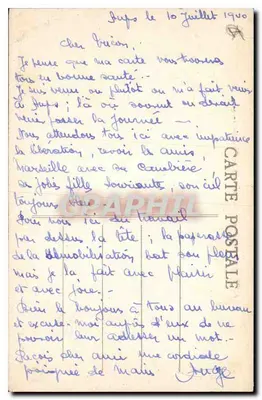 Aups le 10 Juillet 1940
Cher
Je pense que ma carte vous trouvera
tous en bonne santé..
Je suis venu ou plutôt on m'a fait venir
à Aups ; là où souvent on devait
venir passer la journée —
Nous attendons tous ici avec impatience
la libération, revoir les amis,
Marseille avec sa Canebière
ses jolies filles souriantes, son ciel
toujours bleu
Pour moi ici du travail
par dessus la tête ; la paperasse
de la démobilisation bat son plein
mais je la fait avec plaisir
et avec joie..
le bonjour à tous au bureau
et excuse-moi auprès d'eux de ne
pouvoir leur adresser un mot..
Reçois cher ami une cordiale
poignée de mains
CARTE POSTALE